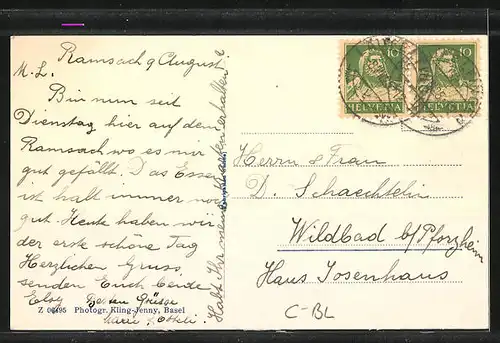 Ramsach 9 August
M. L.
Bin nun seit
Dienstag hier auf dem
Ramsach wo es mir
gut gefällt. Das Essen
ist halt immer noch
gut. Heute haben wir
der erste schöne Tag
Herzlichen Gruss
senden Euch beide
Elsy Besten Grüsse
Marie
Habt Ihr meine Karten erhalten
HELVETIA 10
HELVETIA 10
Herrn & Frau
D. Schaechtelin
Wildbad b/Pforzheim
Haus Josenhaus
C-BL
Z 06495 Photogr. Kling-Jenny, Basel